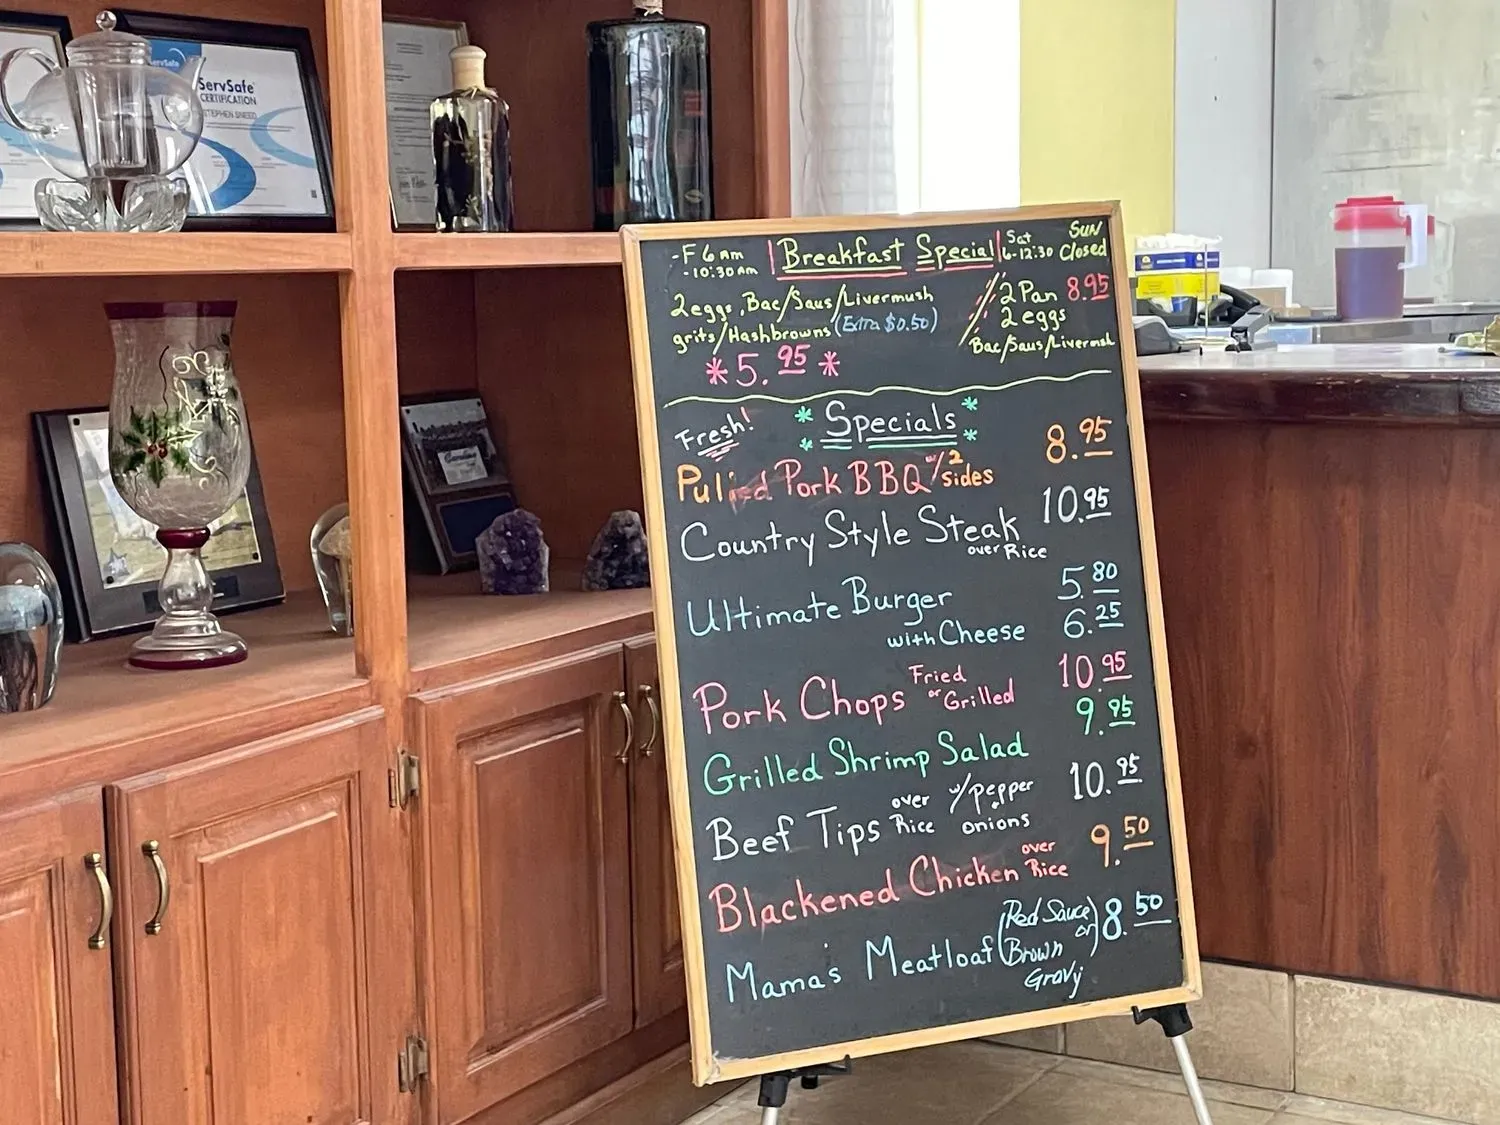 ServSafe
ServSafe
CERTIFICATION
STEPHEN SNEED
-F 6 AM
-10:30 AM
Breakfast Special
Sat
6-12:30
SUN
Closed
2 eggs, Bac/Saus/Livermush
grits/Hashbrowns (Extra $0.50)
*5.95*
2 Pan 8.95
2 eggs
Bac/Saus/Livermush
Fresh! * Specials *
Pulled Pork BBQ w/2 sides 8.95
Country Style Steak over Rice 10.95
Ultimate Burger 5.80
with Cheese 6.25
Pork Chops Fried or Grilled 10.95
Grilled Shrimp Salad 9.95
Beef Tips over Rice w/pepper + onions 10.95
Blackened Chicken over Rice 9.50
Mama's Meatloaf (Red Sauce or Brown Gravy) 8.50